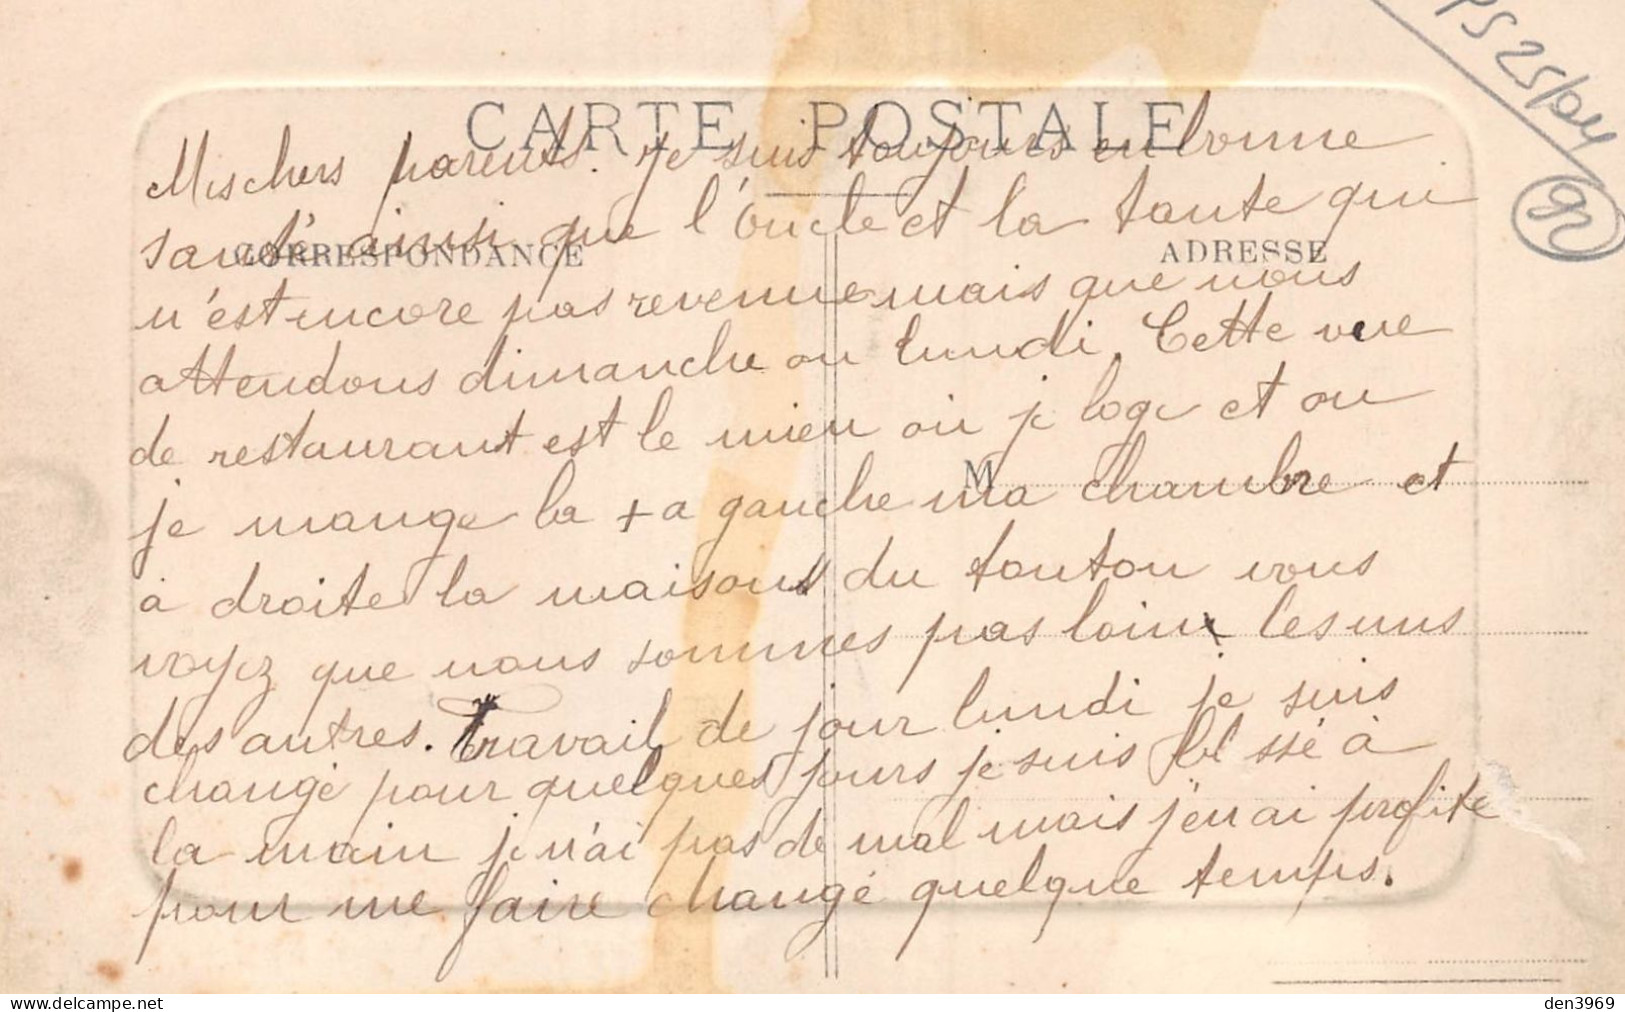 PS 25/04
92
CARTE POSTALE
Mes chers parents. je suis toujours en bonne
CORRESPONDANCE
ADRESSE
santé ainsi que l'oncle et la tante qui
n'est encore pas revenue mais que nous
attendons dimanche ou lundi, Cette vue
de restaurant est le mien où je loge et ou
M
je mange la + a gauche ma chambre et
à droite la maison du tonton vous
voyez que nous sommes pas loin les uns
des autres. Travail de jour lundi je suis
changé pour quelques jours je suis blessé à
la main je n'ai pas de mal mais j'en ai profite
pour me faire changé quelque temps.
www.delcampe.net
den3969